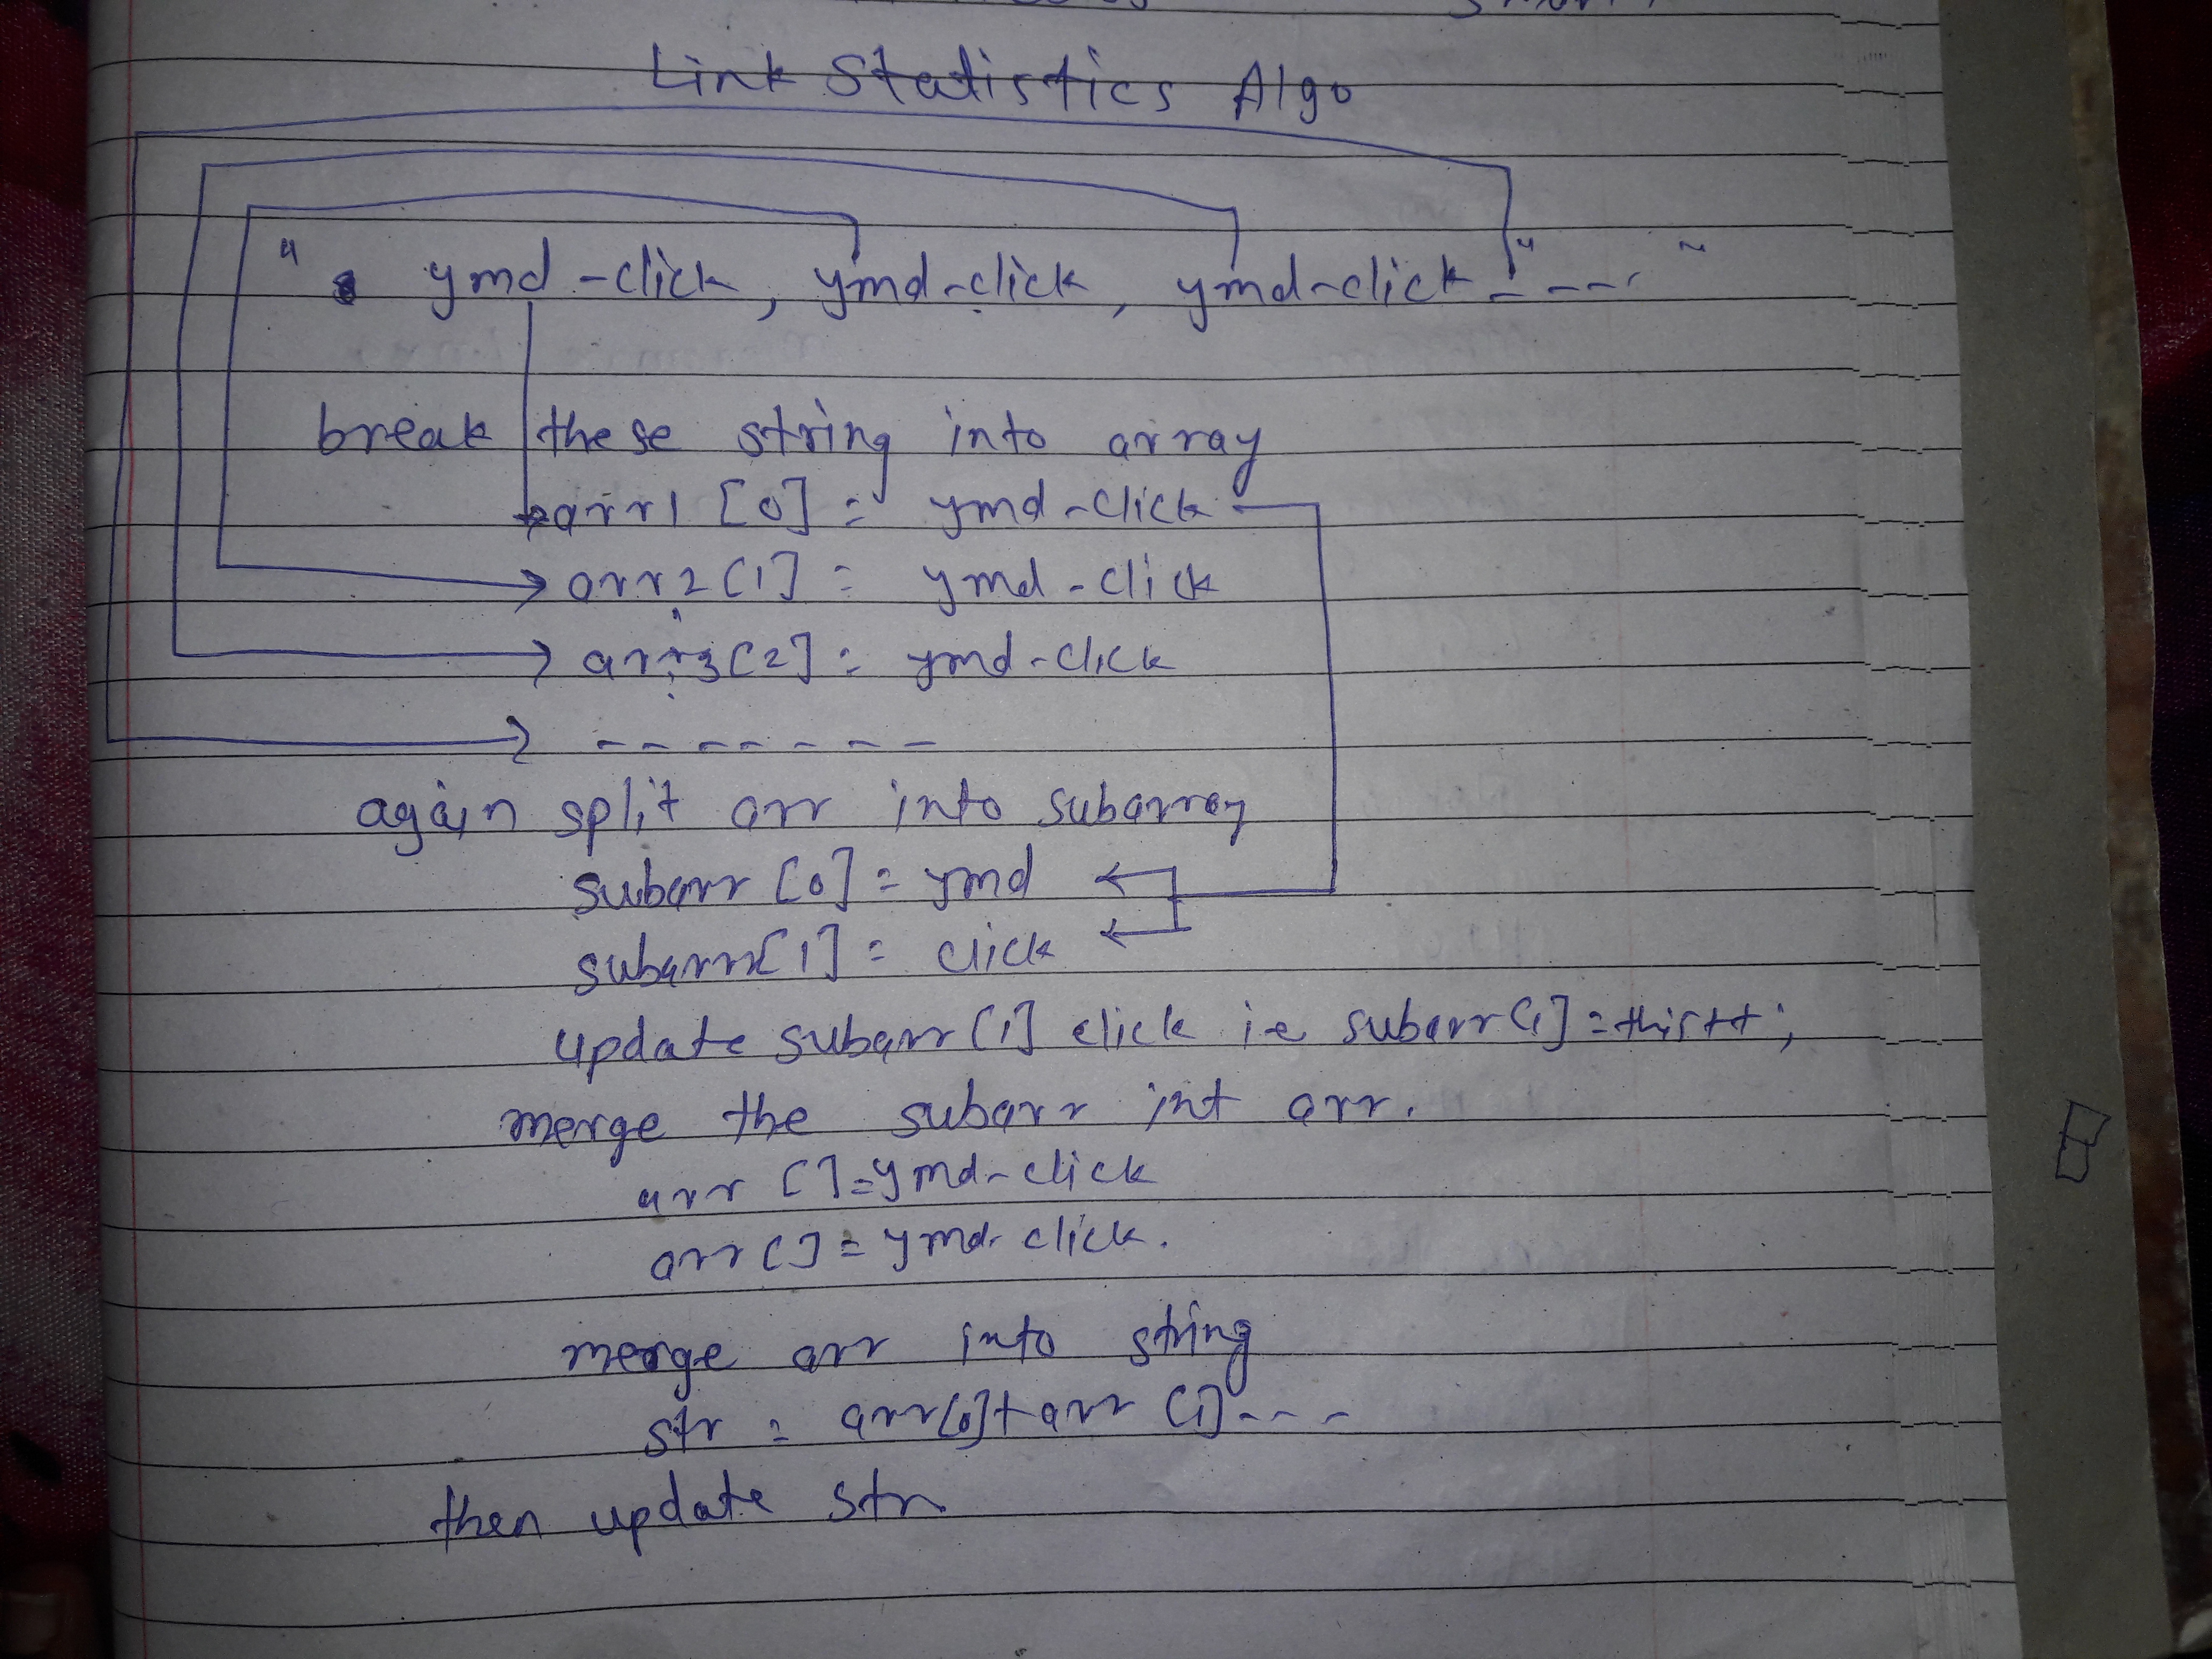 Link Statistics Algo
" ymd-click, ymd-click, ymd-click" - - - "
break these string into array
arr1[0] = ymd-click
arr2[1] = ymd-click
arr3[2] = ymd-click
- - - - - - -
again split arr into subarray
subarr[0] = ymd
subarr[1] = click
update subarr[1] click ie subarr[1] = this++;
merge the subarr int arr.
arr[] = ymd-click
arr[] = ymd-click.
merge arr into string
str = arr[0] + arr[1] - - -
then update str.